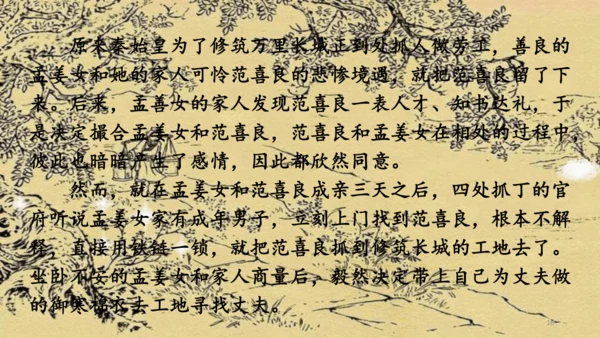 原来秦始皇为了修筑万里长城正到处抓人做劳工，善良的
孟姜女和她的家人可怜范喜良的悲惨境遇，就把范喜良留了下
来。后来，孟姜女的家人发现范喜良一表人才、知书达礼，于
是决定撮合孟姜女和范喜良，范喜良和孟姜女在相处的过程中
彼此也暗暗产生了感情，因此都欣然同意。
然而，就在孟姜女和范喜良成亲三天之后，四处抓丁的官
府听说孟姜女家有成年男子，立刻上门找到范喜良，根本不解
释，直接用铁链一锁，就把范喜良抓到修筑长城的工地去了。
坐卧不安的孟姜女和家人商量后，毅然决定带上自己为丈夫做
的御寒棉衣去工地寻找丈夫。